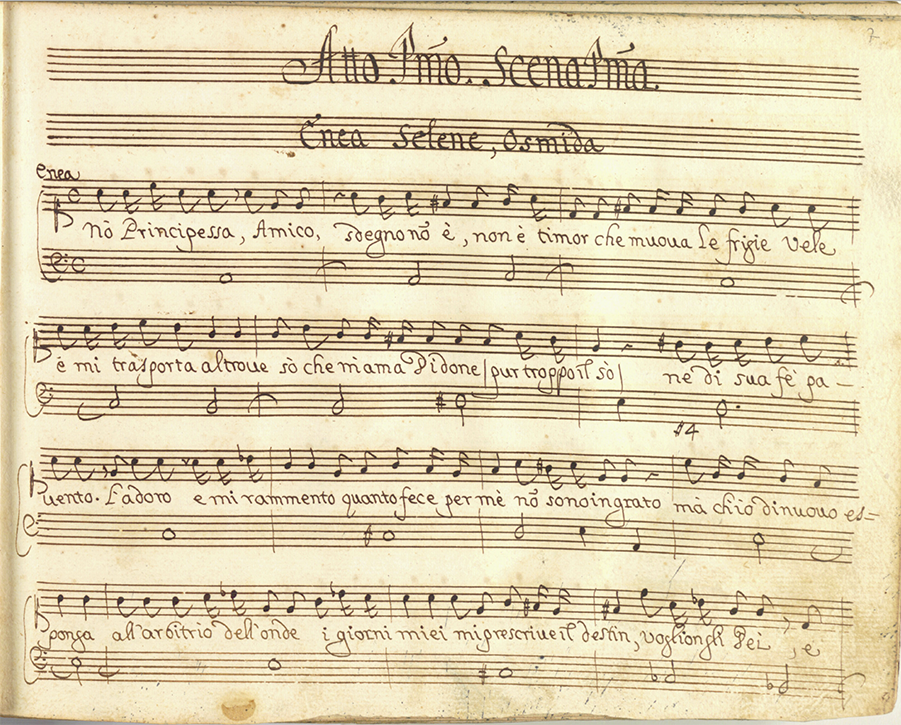 Atto Pmo. Scena Pma.
Enea Selene, Osmida
Enea
Nò Principessa, Amico, sdegno nō è, non è timor che muova le frigie vele
e mi trasporta altrove sò che m'ama Didone | pur troppo il sò | ne di sua fè pa-
#4
vento. L'adoro e mi rammento quanto fece per mè nō sono ingrato mà ch'io di nuovo es=
ponga all'arbitrio dell'onde i giorni miei mi prescrive il destin, voglion gli Dei, e